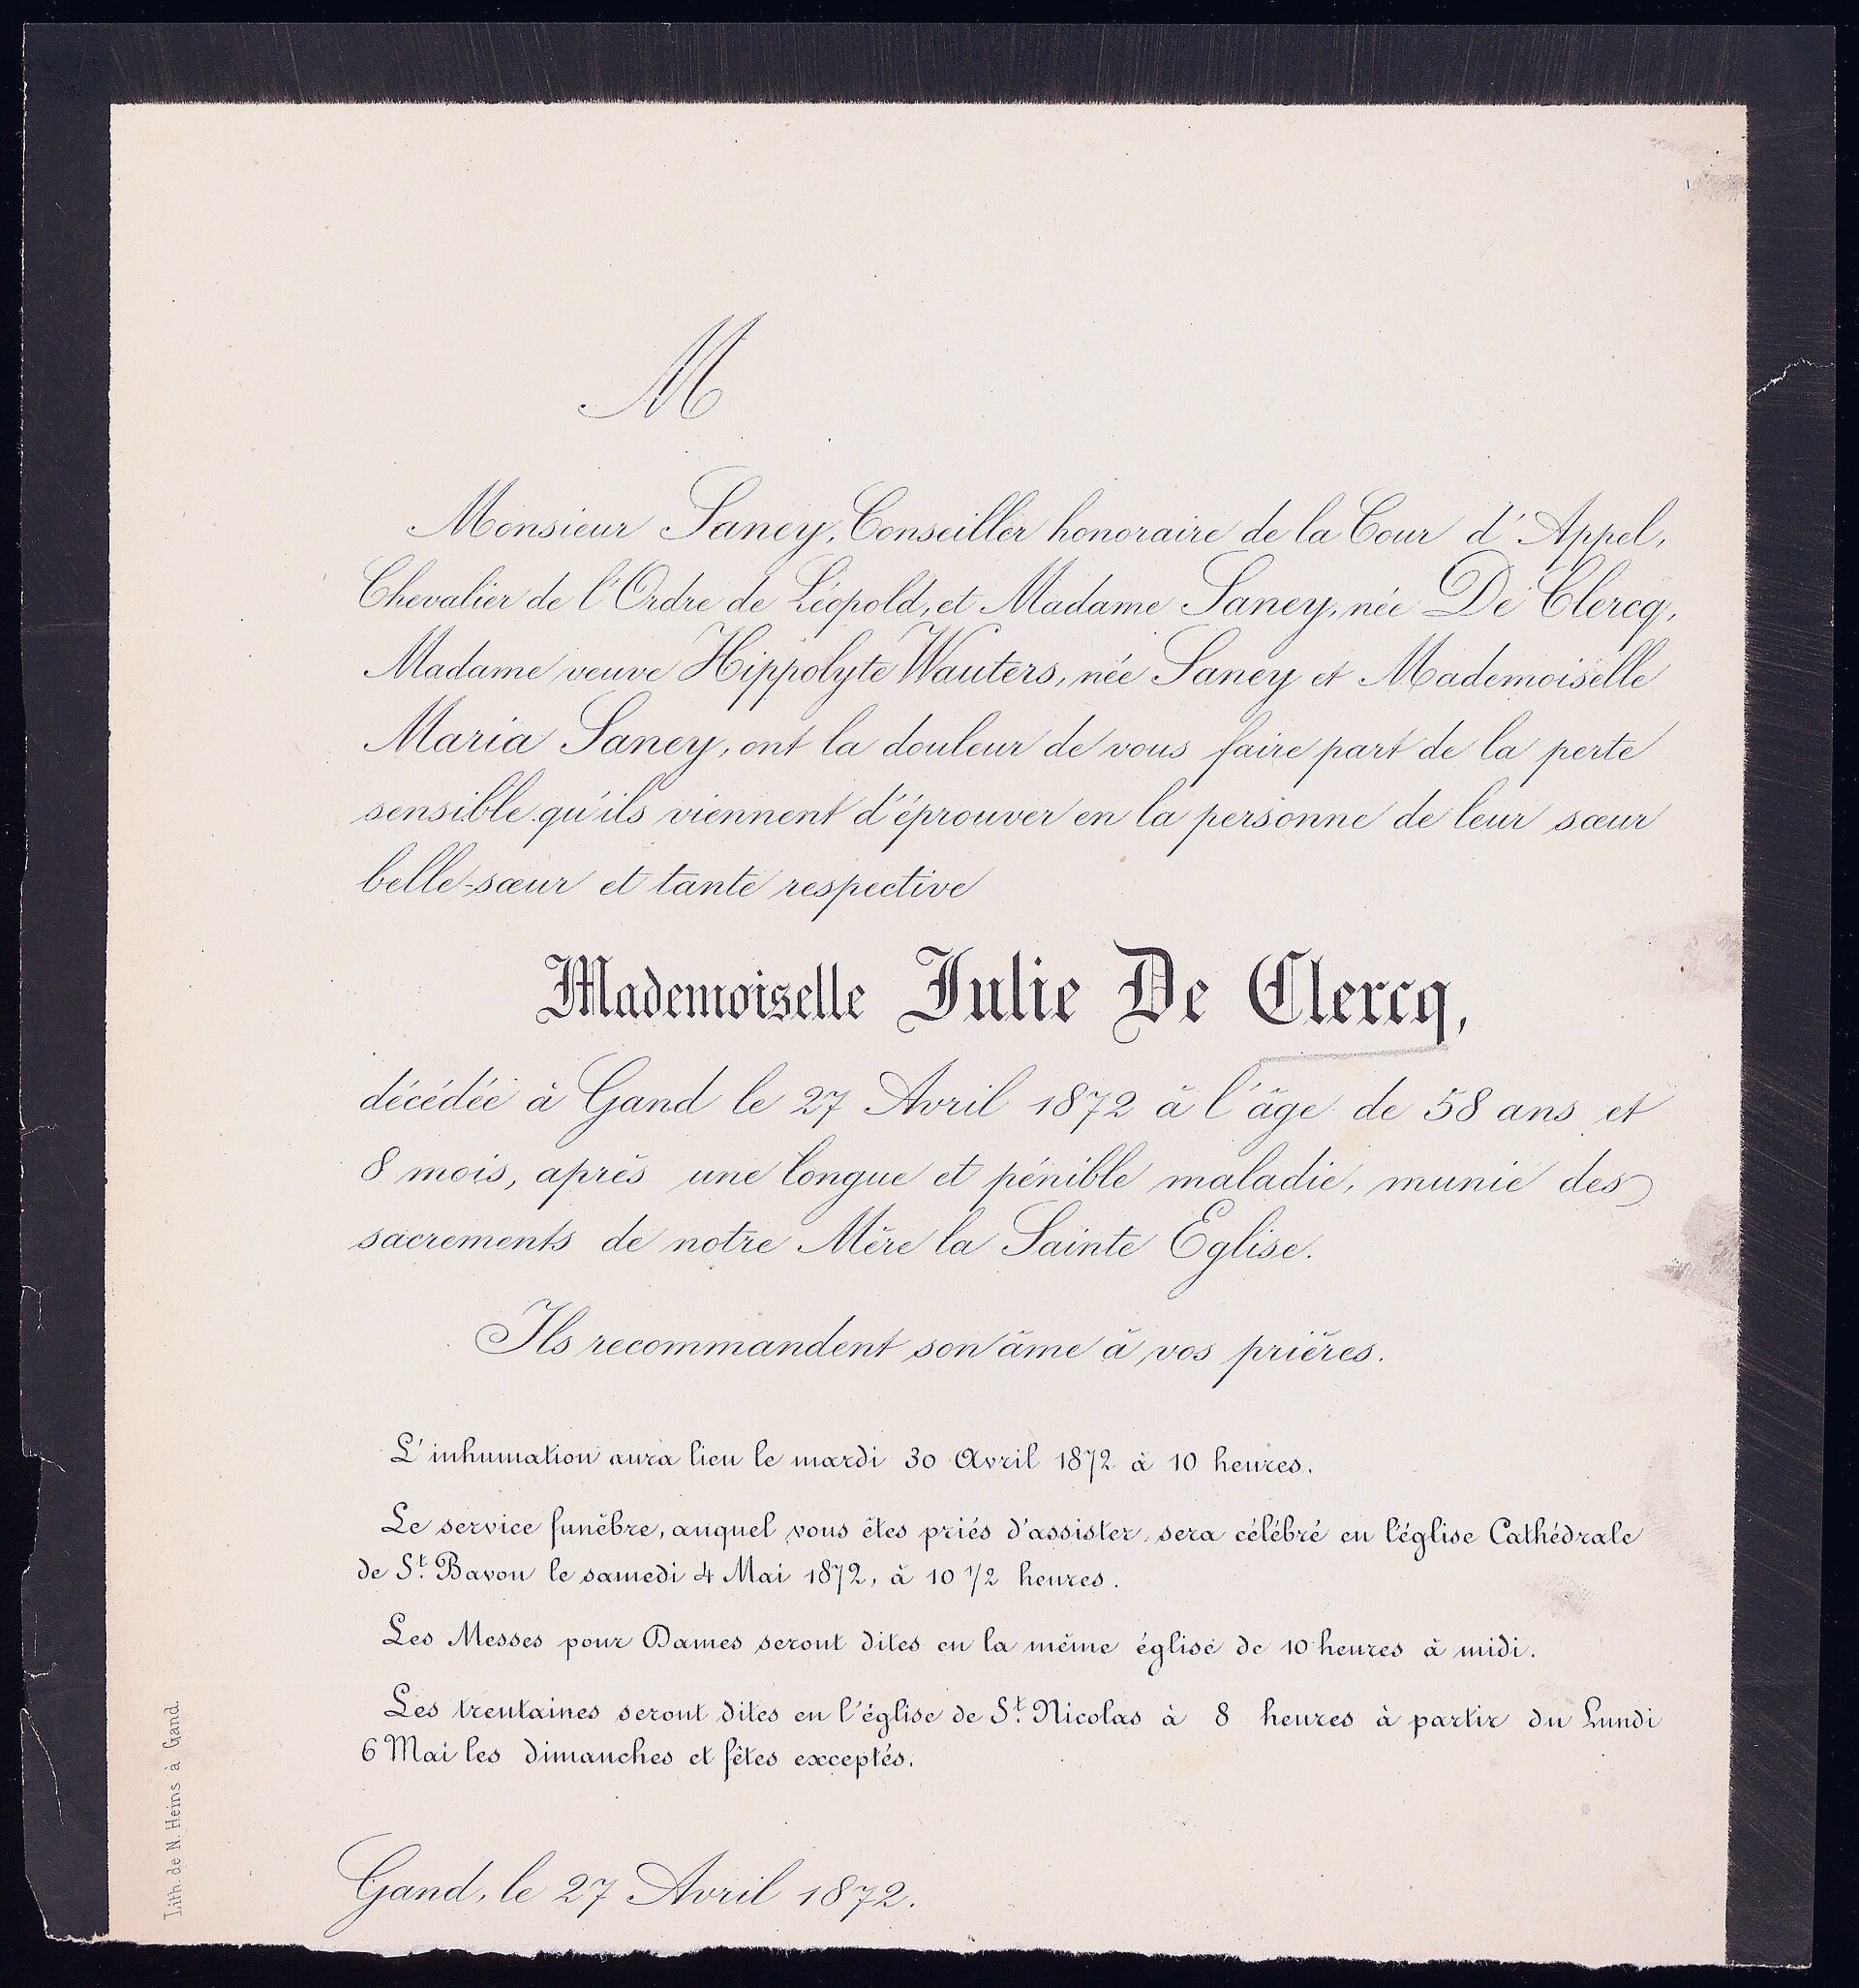 M
Monsieur Saney, Conseiller honoraire de la Cour d'Appel,
Chevalier de l'Ordre de Léopold, et Madame Saney, née De Clercq,
Madame veuve Hippolyte Wauters, née Saney et Mademoiselle
Maria Saney, ont la douleur de vous faire part de la perte
sensible qu'ils viennent d'éprouver en la personne de leur sœur
belle-sœur et tante respective
Mademoiselle Julie De Clercq,
décédée à Gand le 27 Avril 1872 à l'âge de 58 ans et
8 mois, après une longue et pénible maladie, munie des
sacrements de notre Mère la Sainte Eglise.
Ils recommandent son âme à vos prières.
L'inhumation aura lieu le mardi 30 Avril 1872 à 10 heures.
Le service funèbre, auquel vous êtes priés d'assister, sera célébré en l'église Cathédrale
de St. Bavon le samedi 4 Mai 1872, à 10 1/2 heures.
Les Messes pour Dames seront dites en la même église de 10 heures à midi.
Les trentaines seront dites en l'église de St. Nicolas à 8 heures à partir du Lundi
6 Mai les dimanches et fêtes exceptés.
Gand, le 27 Avril 1872.
Lith. de N. Heins à Gand.